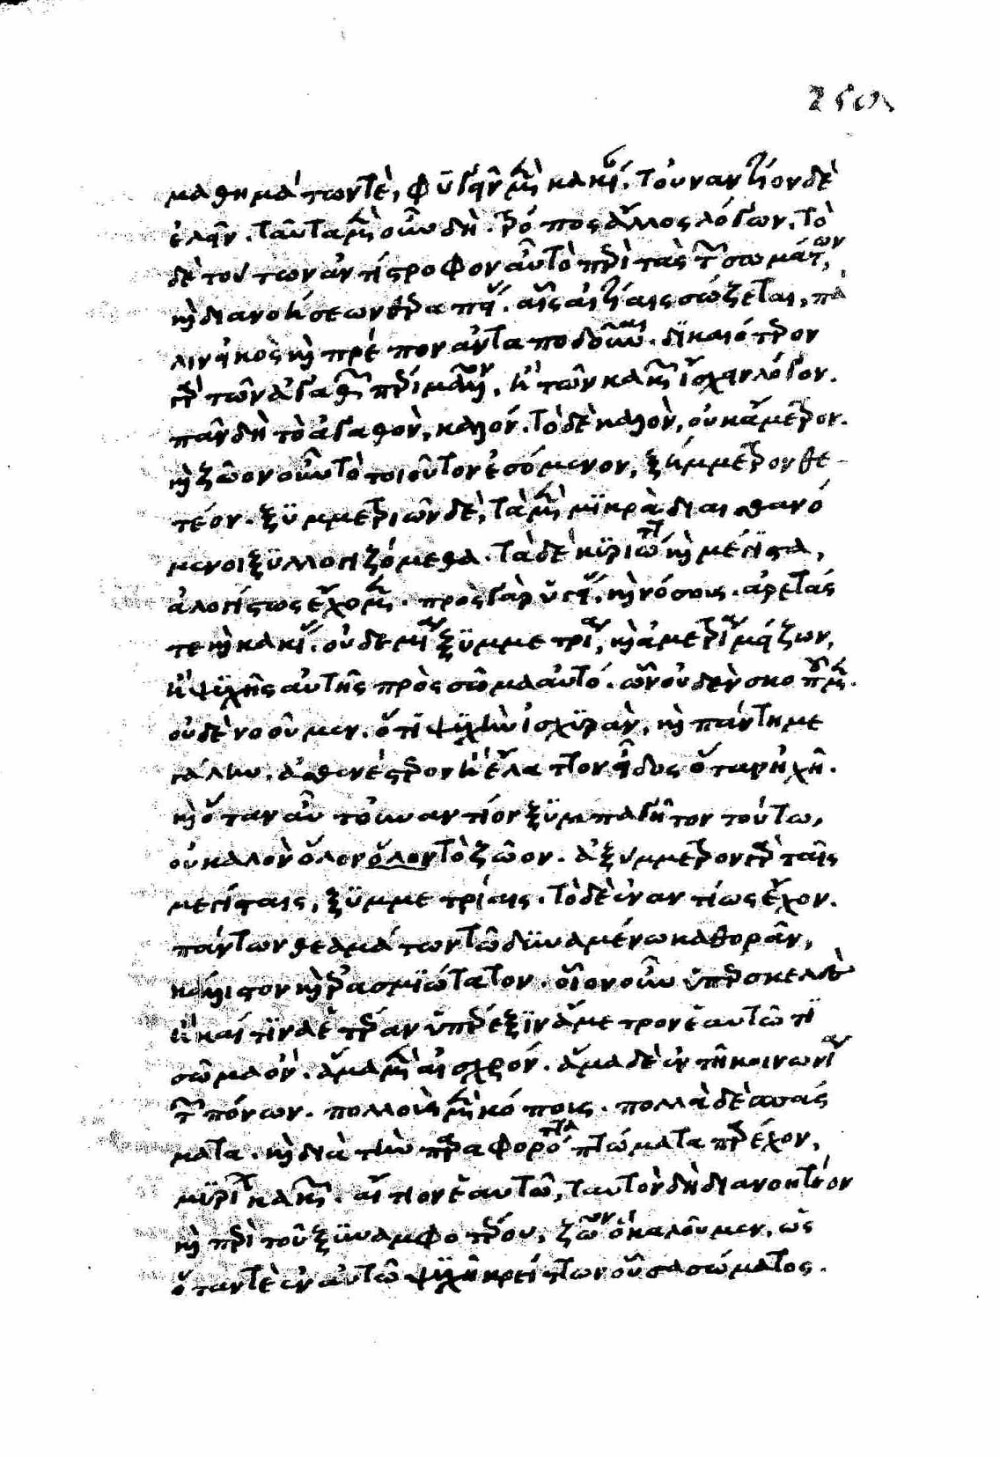 μαθημάτων τὲ, φυγεῖν μὲν κακίαν. τοὐναντίον δὲ
ἑλεῖν. ταῦτα μὲν οὖν δὴ τρόπος ἄλλος λόγων. τὸ
δὲ τούτων ἀντίστροφον αὖ τὸ περὶ τὰς τῶν σωμάτων,
καὶ διανοήσεων θεραπείας. αἷς αἰτίαις σώζεται, πά
λιν εἰκὸς καὶ πρέπον ἀνταποδοῦναι. δικαιότερον
γὰρ τῶν ἀγαθῶν πέρι μᾶλλον, ἢ τῶν κακῶν ἴσχειν λόγον.
πᾶν δὴ τὸ ἀγαθὸν, καλόν. τὸ δὲ καλὸν, οὐκ ἄμετρον.
καὶ ζῶον οὖν τὸ τοιοῦτον ἐσόμενον, ξύμμετρον θε
τέον. ξυμμετριῶν δὲ, τὰ μὲν μικρὰ διαισθανό
μενοι ξυλλογιζόμεθα. τὰ δὲ κυριώτατα καὶ μέγιστα,
ἀλογίστως ἔχομεν. πρὸς γὰρ ὑγιείας, καὶ νόσους. ἀρετάς
τε καὶ κακίας. οὐδεμία ξυμμετρία, καὶ ἀμετρία μείζων,
ἢ ψυχῆς αὐτῆς πρὸς σῶμα αὐτό. ὧν οὐδὲν σκοποῦμεν.
οὐδὲ νοοῦμεν. ὅτι ψυχὴν ἰσχυρὰν, καὶ πάντη με
γάλην. ἀσθενέστερον καὶ ἔλαττον εἶδος ὅταν ὀχῆ.
καὶ ὅταν αὖ τοὐναντίον ξυμπαγῆτον τούτω,
οὐ καλὸν ὅλον ὅλον τὸ ζῶον. ἀξύμμετρον γὰρ ταῖς
μεγίσταις, ξυμμετρίαις. τὸ δὲ ἐναντίως ἔχον.
πάντων θεαμάτων τῶ δυναμένω καθορᾶν,
κάλλιστον καὶ ἐρασμιώτατον. οἷον οὖν ὑπερσκελὲς
ἢ καί τινα ἑτέραν ὑπέρεξιν ἄμετρον ἑαυτῶ τι
σῶμα ὂν. ἅμα μὲν αἰσχρόν. ἅμα δὲ ἐν τῆ κοινωνία
τῶν πόνων. πολλοὺς μὲν κόπους. πολλὰ δὲ σπάς
ματα. καὶ διὰ τὴν παραφορότητα πτώματα παρέχον,
μυρίων κακῶν. αἴτιον ἑαυτῶ, ταυτὸν δὴ διανοητέον
καὶ περὶ τοῦ ξυναμφοτέρου, ζῶον ὃ καλοῦμεν. ὡς
ὅταν τὲ ἐν αὐτῶ ψυχὴ κρείττων οὖσα σώματος.